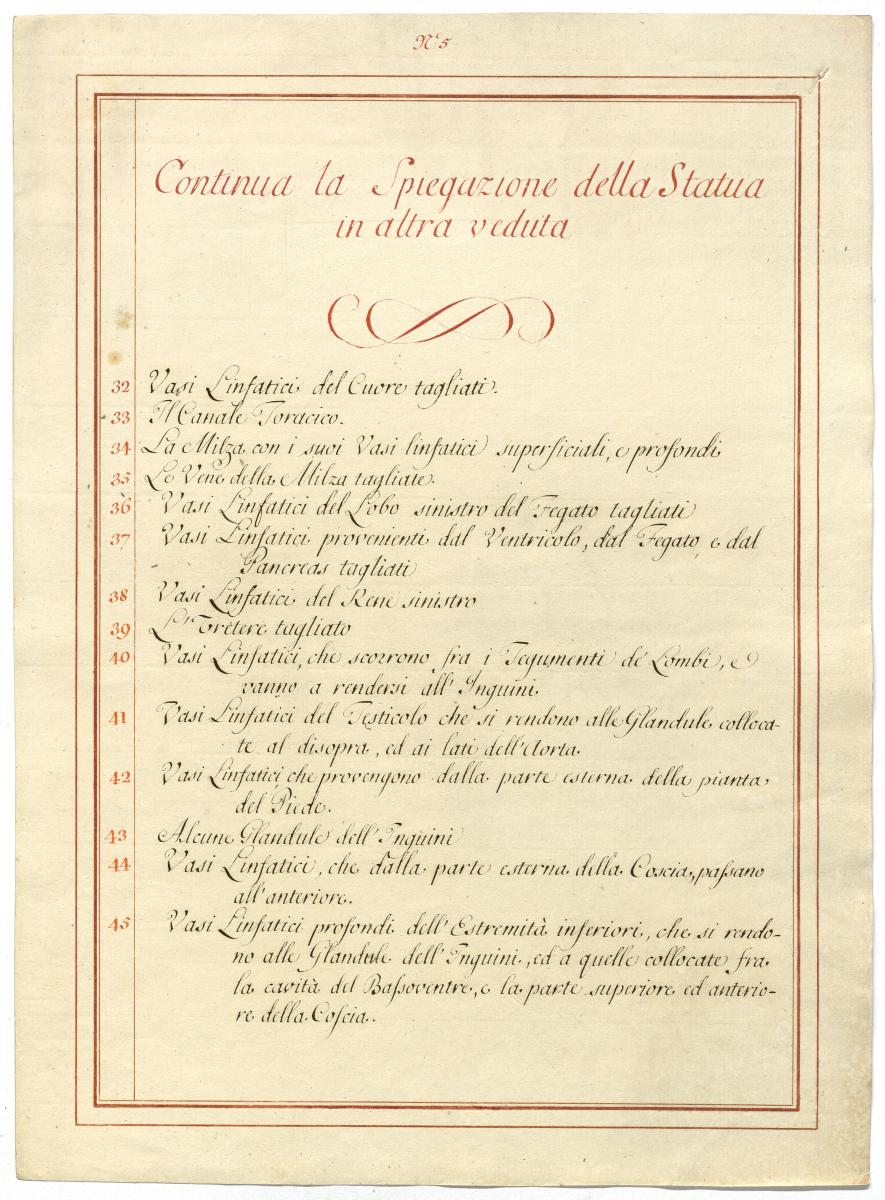 N.º 5
Continua la Spiegazione della Statua
in altra veduta
32 Vasi Linfatici del Cuore tagliati.
33 Il Canale Toracico.
34 La Milza con i suoi Vasi linfatici superficiali, e profondi
35 Le Vene della Milza tagliate.
36 Vasi Linfatici del Lobo sinistro del Fegato tagliati
37 Vasi Linfatici provenienti dal Ventricolo, dal Fegato, e dal
Pancreas tagliati
38 Vasi Linfatici del Rene sinistro
39 L'Uretere tagliato
40 Vasi Linfatici, che scorrono fra i Tegumenti de' Lombi, e
vanno a rendersi all'Inguini
41 Vasi Linfatici del Testicolo che si rendono alle Glandule colloca-
te al disopra, ed ai lati dell'Aorta.
42 Vasi Linfatici che provengono dalla parte esterna della pianta
del Piede.
43 Alcune Glandule dell'Inguini
44 Vasi Linfatici, che dalla parte esterna della Coscia, paſsano
all'anteriore.
45 Vasi Linfatici profondi dell'Estremità inferiori, che si rendo-
no alle Glandule dell'Inguini, ed a quelle collocate fra
la cavità del Baſsoventre, e la parte superiore ed anterio-
re della Coſcia.